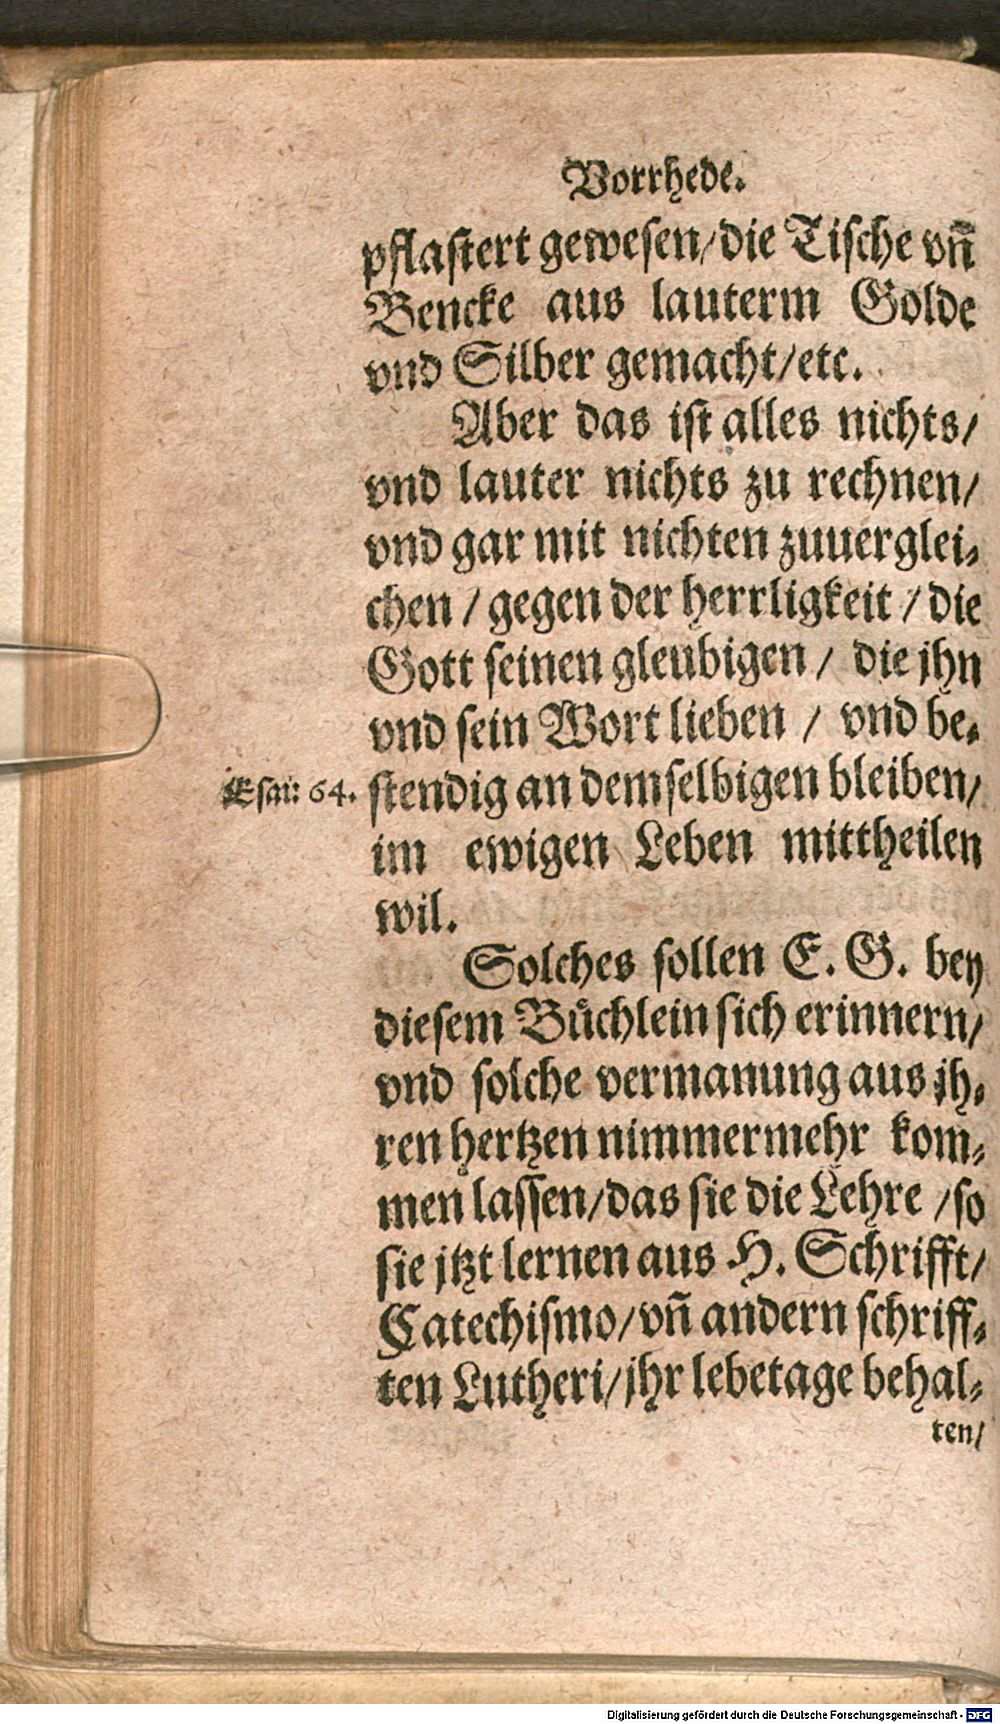 Vorrhede.
pflaſtert geweſen/die Tiſche vñ
Bencke aus lauterm Golde
vnd Silber gemacht/etc.
Aber das iſt alles nichts/
vnd lauter nichts zu rechnen/
vnd gar mit nichten zuuerglei⸗
chen / gegen der herrligkeit / die
Gott ſeinen gleubigen / die jhn
vnd ſein Wort lieben / vnd be⸗
Eſai: 64. ſtendig an demſelbigen bleiben/
im ewigen Leben mittheilen
wil.
Solches ſollen E. G. bey
dieſem Buͤchlein ſich erinnern/
vnd ſolche vermanung aus jh⸗
ren hertzen nimmermehr kom⸗
men laſſen/das ſie die Lehre /ſo
ſie jtzt lernen aus H. Schrifft/
Catechiſmo/vñ andern ſchriff⸗
ten Lutheri/jhr lebetage behal⸗
ten/
Digitalisierung gefördert durch die Deutsche Forschungsgemeinschaft - DFG